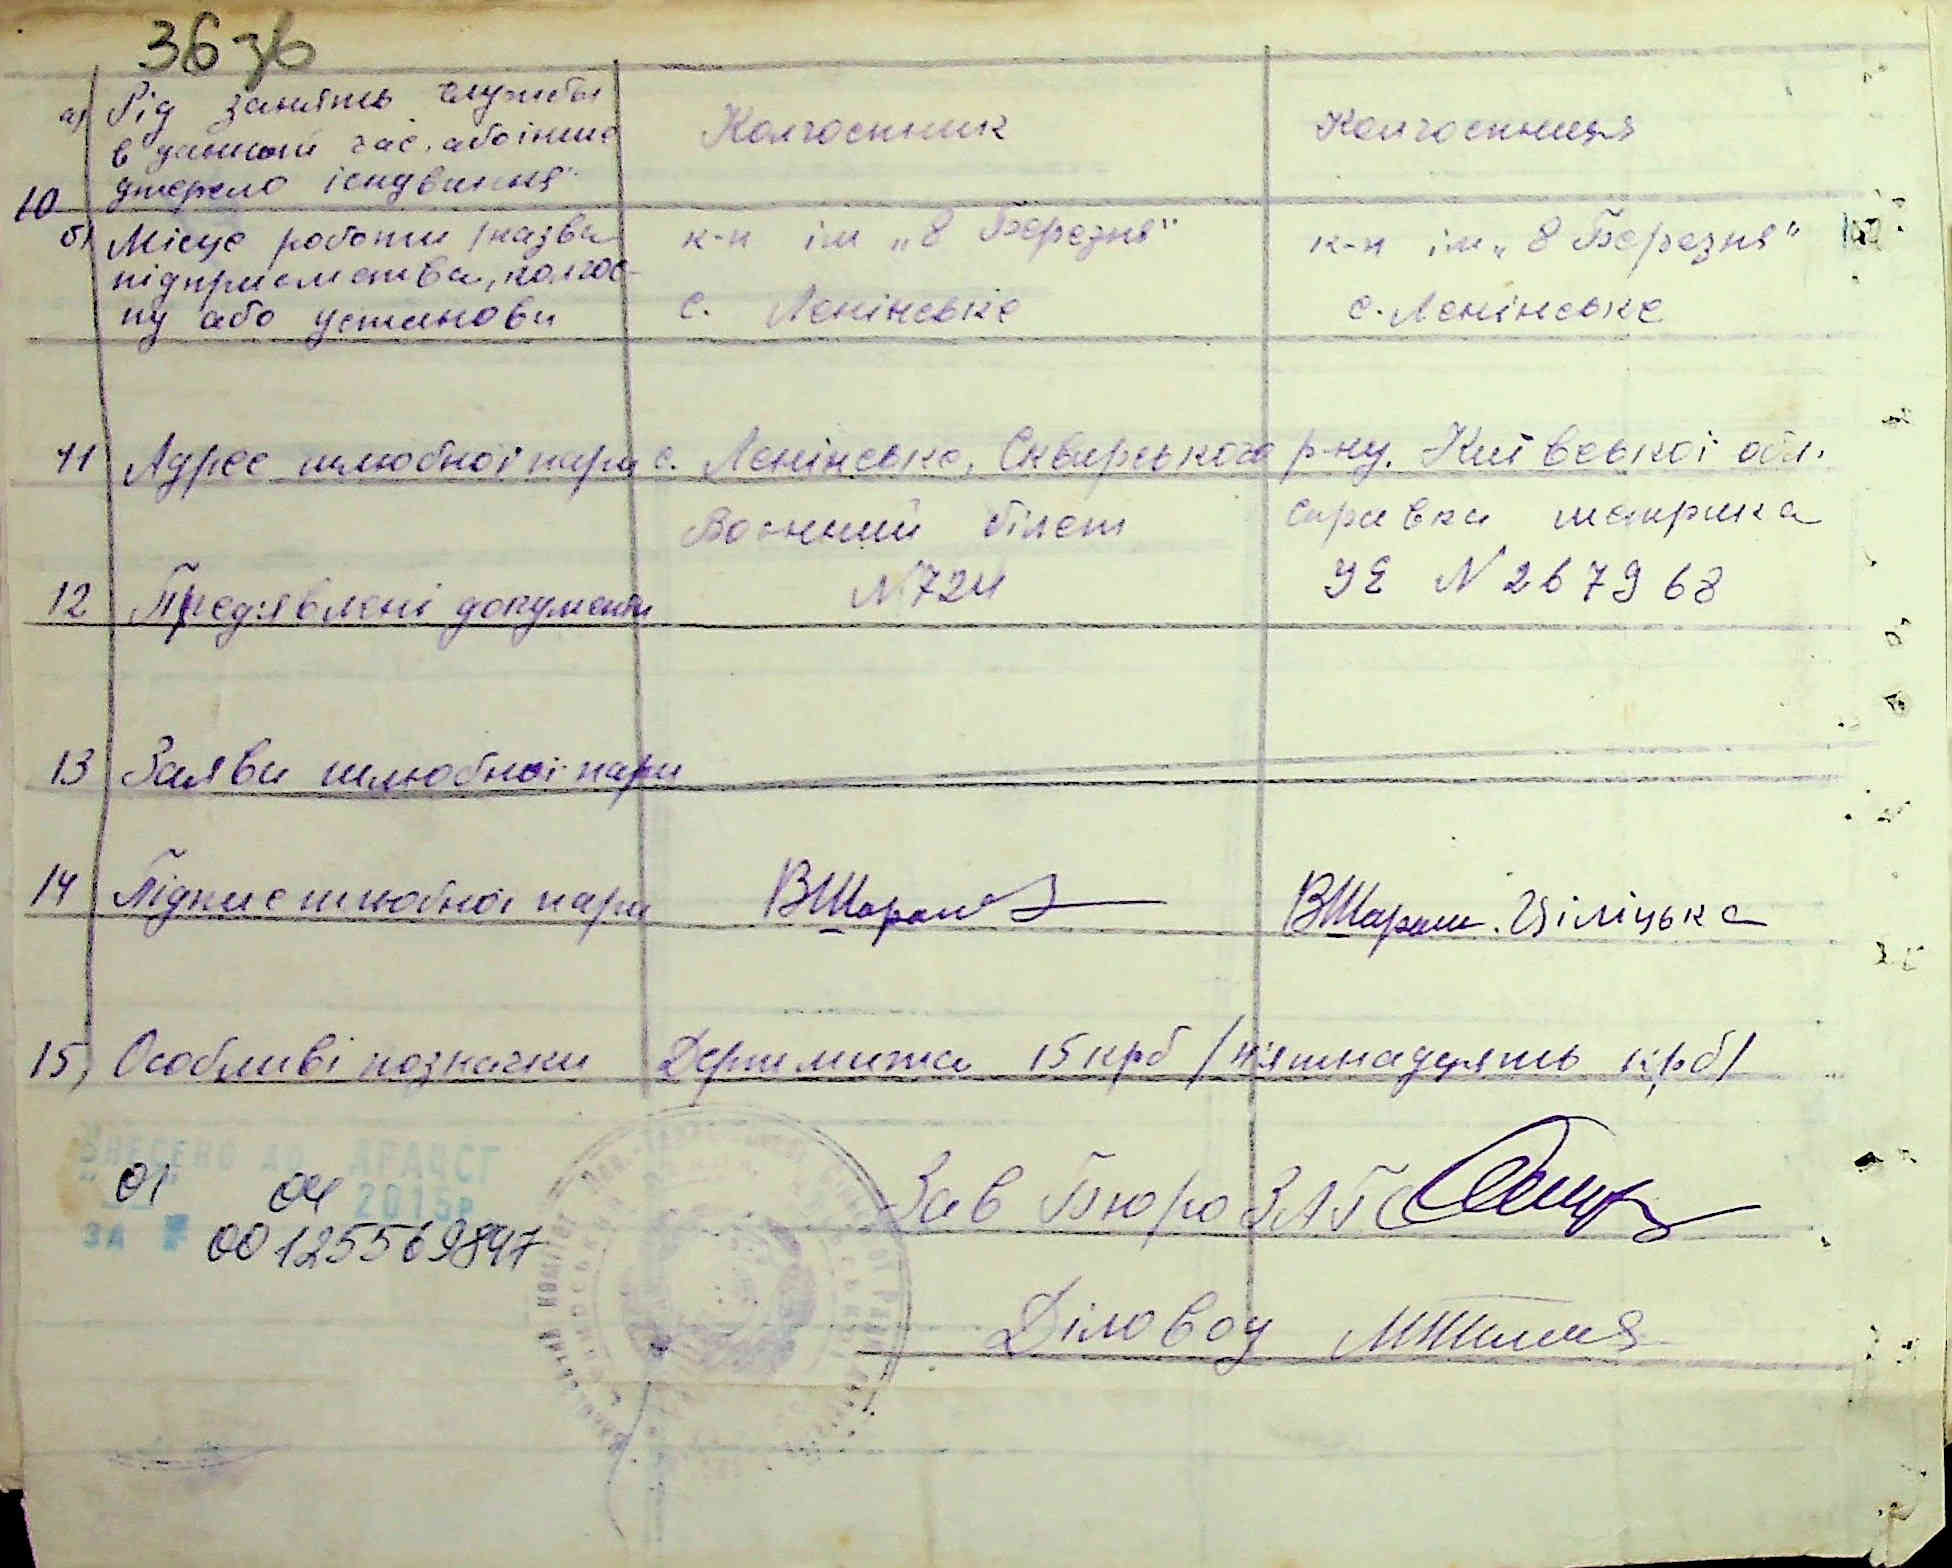 36 зв
а) Рід занять служби
в даний час, або інше
джерело існування
Колгоспник
Колгоспниця
10
б) Місце роботи /назва
підприємства, колгос-
пу або установи
к-п ім „8 Березня"
с. Ленінське
к-п ім „8 Березня"
с. Ленінське
11 Адрес шлюбної пари с. Ленінське, Сквирського р-ну. Київської обл.
12 Предявлені документи
Воєнний білет
N 724
справка метрика
УЕ N 267968
13 Заяви шлюбної пари
14 Підпис шлюбної пари ВШарам ВШарам. Ціліцька
15, Особливі позначки Держмита 15 крб /п'ятнадцять крб/
ВНЕСЕНО ДО ДРАЦСГ
01 04 2015р
ЗА № 00125569847
Зав Бюро ЗАГС
Діловод